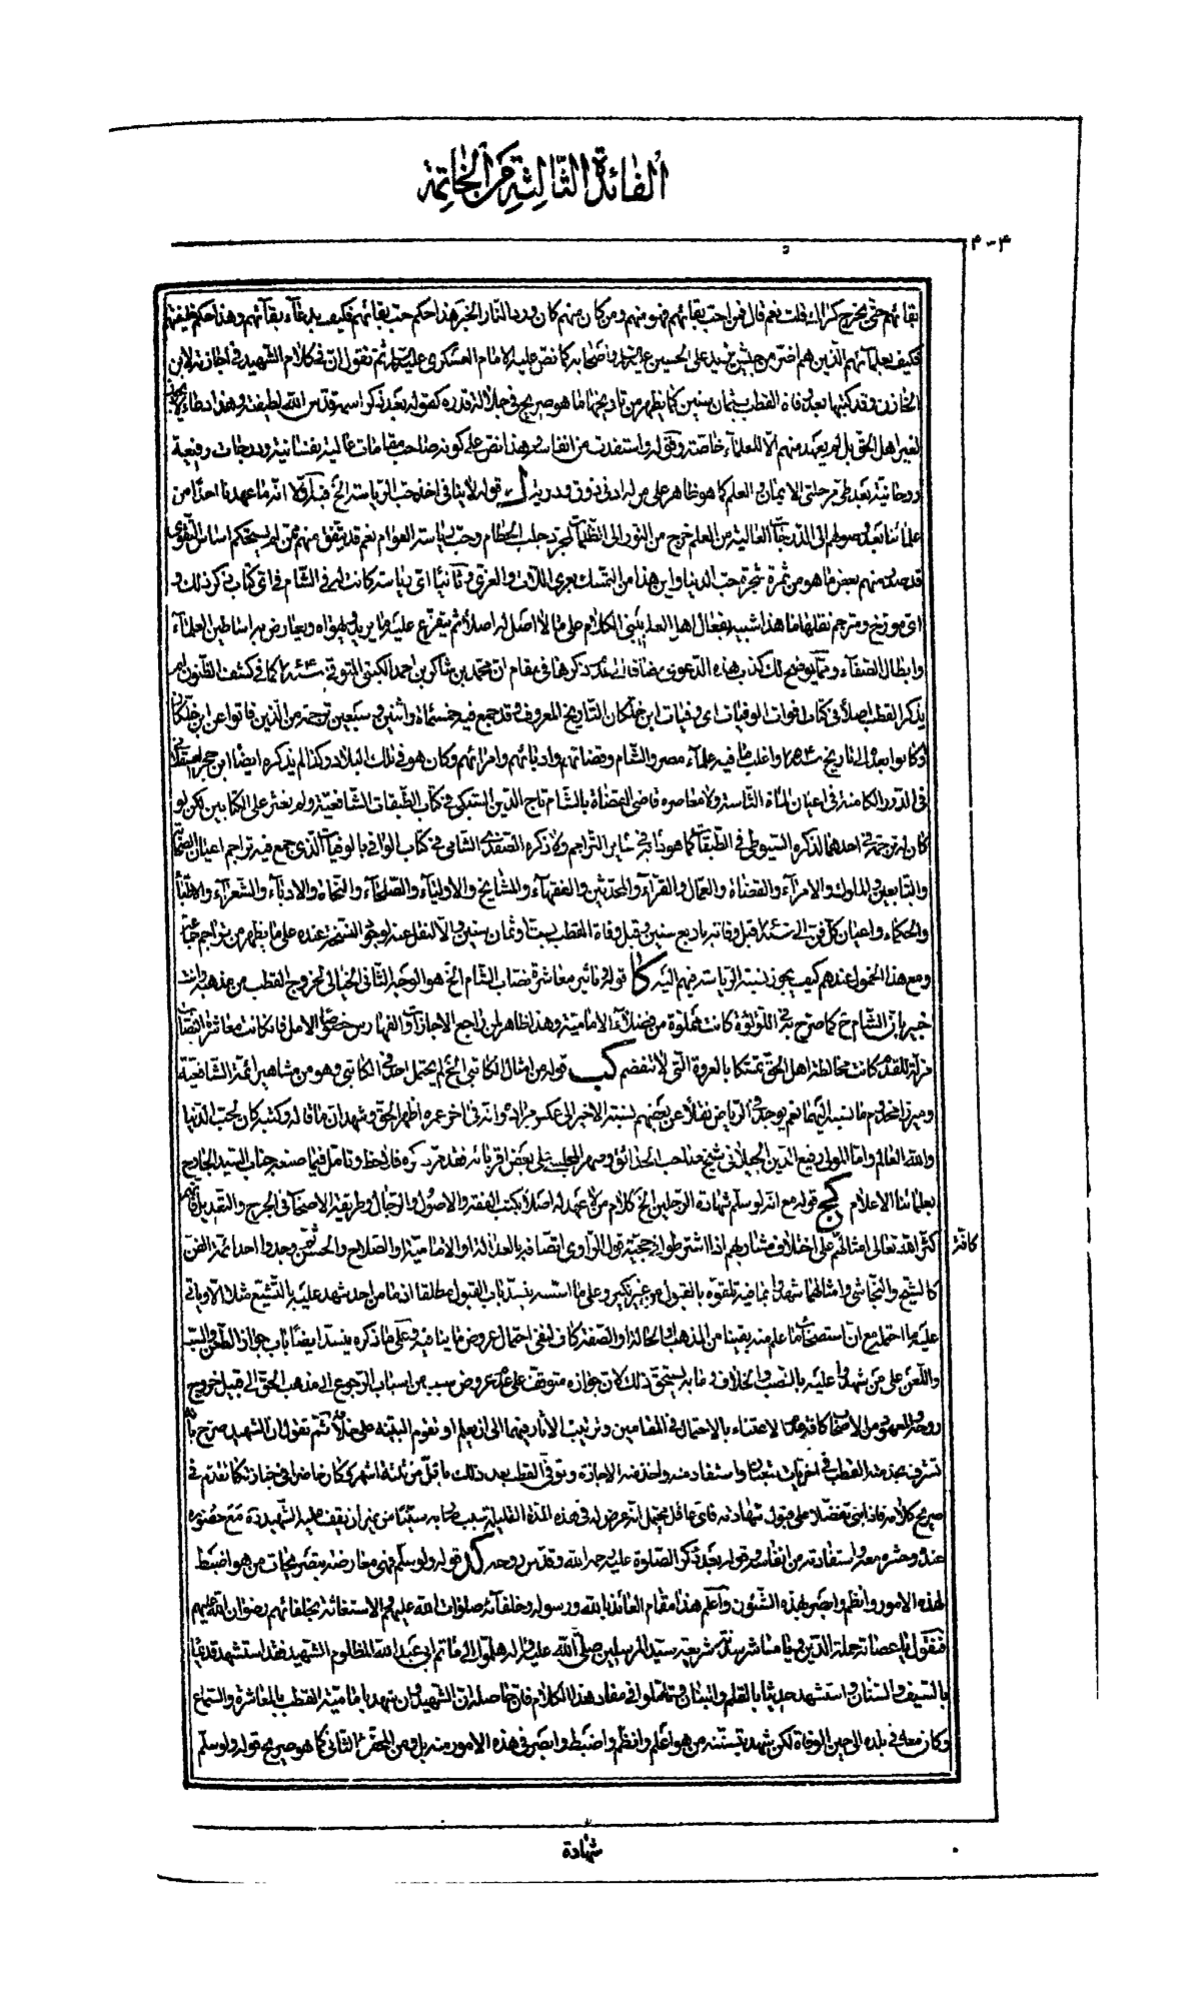 الفائدة الثالثة من الخاتمة
بقائهم حتى يخرج كراك قلت نعم قال فمن احب بقائهم فهو منهم ومن كان منهم كان ورد النار الخبر هذا حكم حب بقائهم فكيف بدعاء بقائهم وهذا حكم
فكيف بعلمائهم الذين هم اضر من جيش يزيد على الحسين بن علي عليهما السلام واصحابه كما نص عليه الامام العسكري عليه السلام ثم نقول ان في كلام الشهيد في اجازته لابن
الخازن وقد كتبها بعد وفاة القطب بثمان سنين كما يظهر من تاريخها ما هو صريح في جلالة قدره كقوله بعد ذكر اسمه قدس الله لطيفه وهذا دعاء
لغير اهل الحق بل لم يعهد منهم الا للعلماء خاصة وقوله واستفدت من انفاسه وهذا نص على كونه صاحب مقامات عالية نفسانية ودرجات رفيعة
روحانية بعد طي مرحلتي الايمان والعلم كما هو ظاهر على من له ادنى ذوق ودرية قوله لا ينافي اخذ حب الرياسة الخ فيه اولا انه ما عهدنا احدا من
علمائنا بعد وصولهم الى الدرجات العالية من العلم خرج من النور الى الظلمات لمجرد جلب الحطام وحب رياسة العوام نعم قد يتفق منهم ممن لم يستحكم اساس التقوى
قد صدر منهم بعض ما هو من ثمرة شجرة حب الدنيا واين هذا من التمسك بعرى اللات والعزى وثانيا اي رياسة كانت له في الشام في اي كتاب ذكر ذلك و
اي مورخ ومترجم نقلها ما هذا شبيه بفعال اهل العلم يبني الكلام على ما لا اصل له اصلا ثم يفرع عليه ما يريده ويهواه ويعارض به اساطين العلماء
وابطال الضعفاء ومما يوضح لك كذب هذه الدعوى مضافا الى عدم ذكرها في مقام ان محمد بن شاكر بن احمد الكتبي المتوفى سنة كما في كشف الظنون لم
يذكر القطب اصلا في كتاب فوات الوفيات اي وفيات ابن خلكان التاريخ المعروف وقد جمع فيه خمسمائة واثنين وسبعين ترجمة من الذين فاتوا عن ابن خلكان
او كانوا بعده الى تاريخ واغلب ما فيه علماء مصر والشام وقضاتهم وادبائهم وامرائهم وكان هو في تلك البلاد وكذا لم يذكره ايضا ابن حجر العسقلاني
في الدرر الكامنة في اعيان المائة الثامنة ولا معاصره قاضي القضاة بالشام تاج الدين السبكي في كتاب الطبقات الشافعية ولم نعثر على الكتابين لكن لو
كان له ترجمة في احدهما لذكره السيوطي في الطبقات كما هو دأبه في سائر التراجم ولا ذكره الصفدي الشامي في كتاب الوافي بالوفيات الذي جمع فيه تراجم اعيان الصحابة
والتابعين والملوك والامراء والقضاة والعمال والقراء والمحدثين والفقهاء والمشايخ والاولياء والصلحاء والنحاة والادباء والشعراء والاطباء
والحكماء واعيان كل فن الى سنة قبل وفاته باربع سنين وقبل وفاة القطب بست او ثمان سنين والا لنقل عنه لوجود النسخة عنده على ما يظهر من
ومع هذا الخمول عندهم كيف يجوز نسبة الرياسة فيهم اليه كا قوله وتأثير معاشرة نصاب الشام الخ هو الوجه الثاني الخيالي لخروج القطب من مذهبه وانت
خبير بان الشام كما صرح به في اللؤلؤة كانت مملوة من فضلاء الامامية وهذا ظاهر لمن راجع الاجازات والفهارس خصوصا الامل فان كانت معاشرة النصاب
مزلة للقدم كانت مخالطة اهل الحق تمسكا بالعروة التي لا تنفصم كب قوله من امثال الكاتبي الخ لم يحتمل احد في الكاتبي وهو من مشاهير ائمة الشافعية
وميرزا مخدوم ما نسبه اليهما نعم يوجد في الرياض نقلا عن بعضهم نسبة الاخير الى عكس مراده وانه في اخر عمره اظهر الحق وشهد ان ما قاله وكتبه كان لحب الدنيا
والله العالم واما المولى رفيع الدين الجيلاني شيخ صاحب الحدائق وصهر المجلسي على بعض اقربائه فقد مر ذكره فلاحظ وتامل فيما صنعه جناب السيد الجامع
بعلمائنا الاعلام كج قوله مع انه لو سلم شهادة الرجلين الخ كلام من لا عهد له اصلا بكتب الفقه والاصول والرجال وطريقة الاصحاب في الجرح والتعديل فانهم
كثر الله تعالى امثالهم على اختلاف مشاربهم اذا اشترطوا في حجية قول الراوي اتصافه بالعدالة او الامامية او الصلاح والحسن فمن وجدوا احد ائمة الفن
كافة
كالشيخ والنجاشي وامثالهما شهدوا بما فيه تلقوه بالقبول من غير نكير وعلى ما اسسه ينسد باب القبول مطلقا اذ ما من احد شهد عليه بالتشيع مثلا الا وياتي
عليه ما احتمله مع ان استصحاب ما علم منه يقينا من المذهب والحالة او الصفة كاف لنفي احتمال عروض ما ينافيه وعلى ما ذكره ينسد ايضا باب جواز الطعن والسب
واللعن على من شهدوا عليه بالنصب والخلاف وما به يستحق ذلك لان جوازه متوقف على عدم عروض سبب من اسباب الرجوع الى مذهب الحق الى قبيل خروج
روحه والمعهود من الاصحاب كافة عدم الاعتناء بالاحتمال في المقامين وترتيب الاثار فيهما الى ان يعلم او تقوم البينة على خلافه ثم نقول ان الشهيد صرح بانه
تشرف بخدمة القطب في اخريات شعبان واستفاد منه واخذ منه الاجازة وتوفي القطب بعد ذلك باقل من ثلثة اشهر وكان حاضرا في جنازته كما تقدم في
صريح كلامه فاذا بنى تفضلا على قبول شهادته فاي عاقل يحتمل انه عرض له في هذه المدة القليلة بسبب شيئا من غير ان يقف عليه الشهيد مع حضوره
عنده وحشره معه واستفادته من انفاسه وقوله بعد ذكر الصلوة عليه رحمه الله وقدس روحه كد قوله ولو سلم فهي معارضة بتصريحات من هو اضبط
لهذه الامور وانظم وابصر بهذه الشئون واعلم هذا مقام العائذ بالله ورسوله وخلفائه صلوات الله عليهم والاستغاثة بخلفائهم رضوان الله عليهم
فنقول يا عصابة حملة الدين ويا معاشر سدنة شريعة سيد المرسلين صلى الله عليه واله هلموا الى ماتم ابي عبد الله المظلوم الشهيد فقد استشهد قديما
بالسيف والسنان واستشهد حديثا بالقلم والبنان وتاملوا في مفاد هذا الكلام فان حاصله ان الشهيد وان شهد بامامية القطب بالمعاشرة والسماع
وكان معه في بلده الى حين الوفاة لكن شهد بتسننه من هو اعلم وانظم واضبط وابصر في هذه الامور منه بل ومن المحقق الثاني كما هو صريح قوله ولو سلم
شهادة